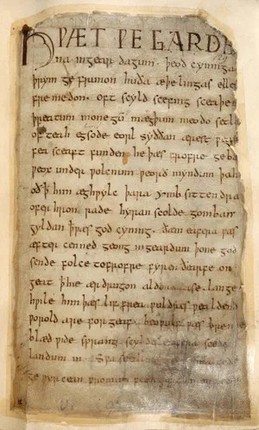 HǷÆT ǷE GARDE
na ingear dagum þeod cyninga
þrym ge frunon huða æþelingas elle
fremedon. oft scyld scefing sceaþe
þreatum monegū mægþum meodo setl
of teah egsode eorl syððan ærest
fea sceaft funden he þæs frofre geba
ƿeox under ƿolcnum ƿeorð myndum þah
oðꝥ him æghƿylc þara ymb sittendra
ofer hron rade hyran scolde gomban
gyldan ꝥ ƿæs god cyning. ðæm eafera ƿæs
æfter cenned geong ingeardum þone god
sende folce tofrofre fyren ðearfe on
geat ꝥ hie ær drugon aldor ase. lange
hƿile him þæs lif frea ƿuldres ƿealdend
ƿorold are for geaf. beoƿulf ƿæs breme
blæd ƿide sprang scyldes eafera scede
landum in. Sƿa
ge ƿyrcean fromum